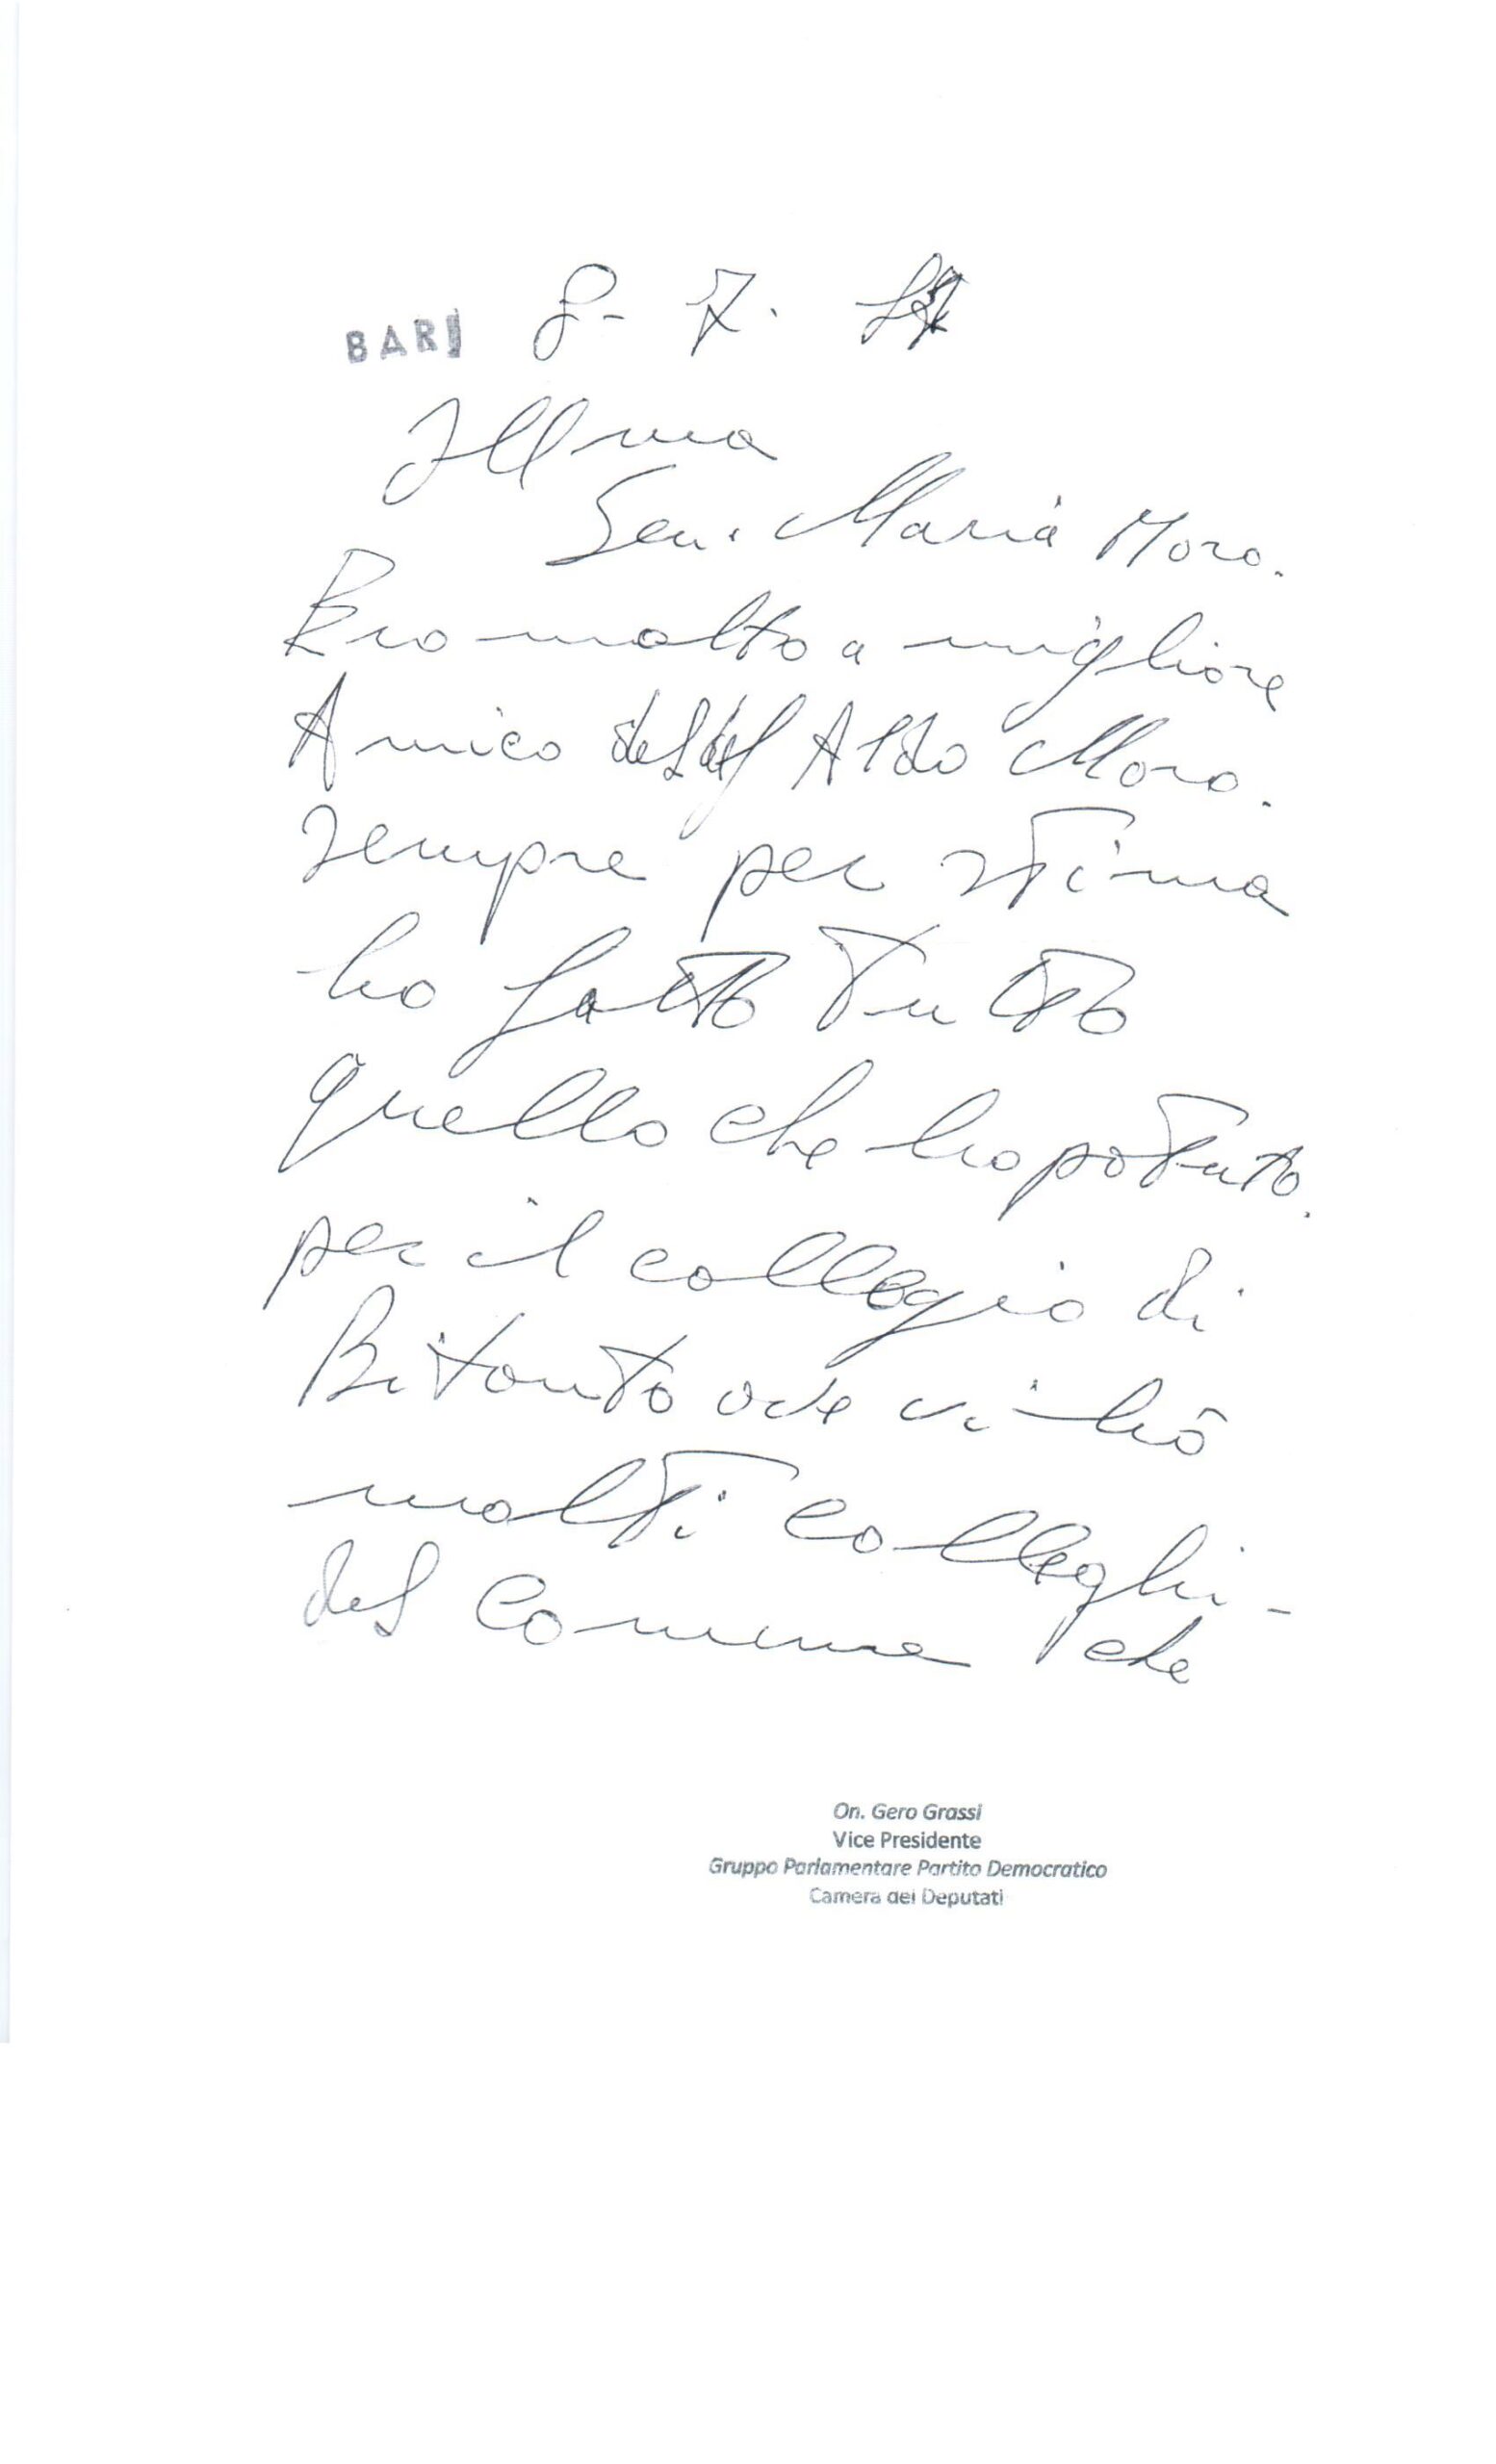 BARI 8-7.
Illma
Sen. Maria Moro.
Ero molto a migliore
Amico del Aldo Moro.
Sempre per stima
ho fatto tutto
quello che ho potuto.
per il collegio di
Bitonto ove vi hò
molti colleghi -
del Comune che
On. Gero Grassi
Vice Presidente
Gruppo Parlamentare Partito Democratico
Camera dei Deputati